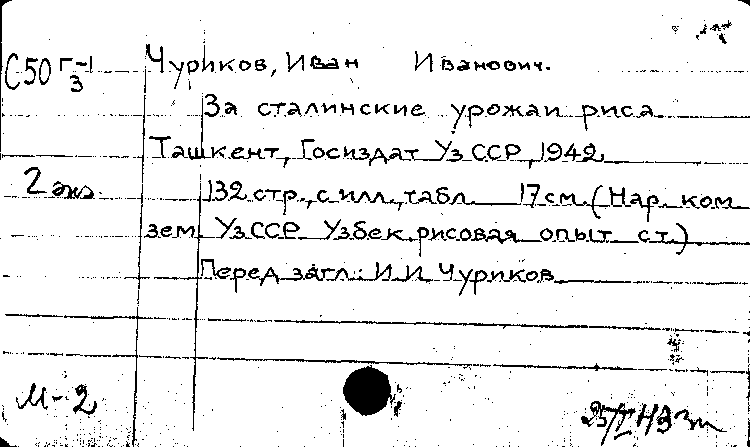 С50 Г-1/3 Чуриков, Иван Иванович.
За сталинские урожаи риса.
Ташкент, Госиздат УзССР, 1942.
2 экз. 132 стр., с илл., табл. 17 см. (Нар. ком
зем. УзССР. Узбек. рисовая опыт. ст.).
Перед загл.: И.И. Чуриков.
М-2